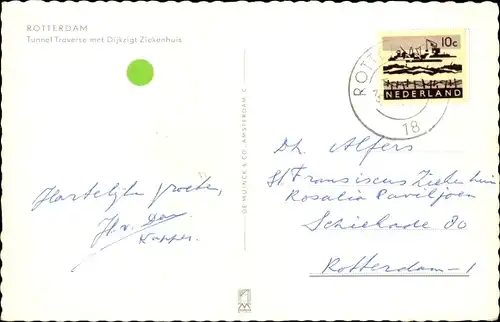 ROTTERDAM
Tunnel Traverse met Dijkzigt Ziekenhuis
10c
NEDERLAND
ROTT
18
DE MUINCK & CO. AMSTERDAM C
Hartelijke groeten,
H. v.
Dh. Alfers
St Franciscus Ziekenhuis
Rosalia Paviljoen
Schiekade 80
Rotterdam-1